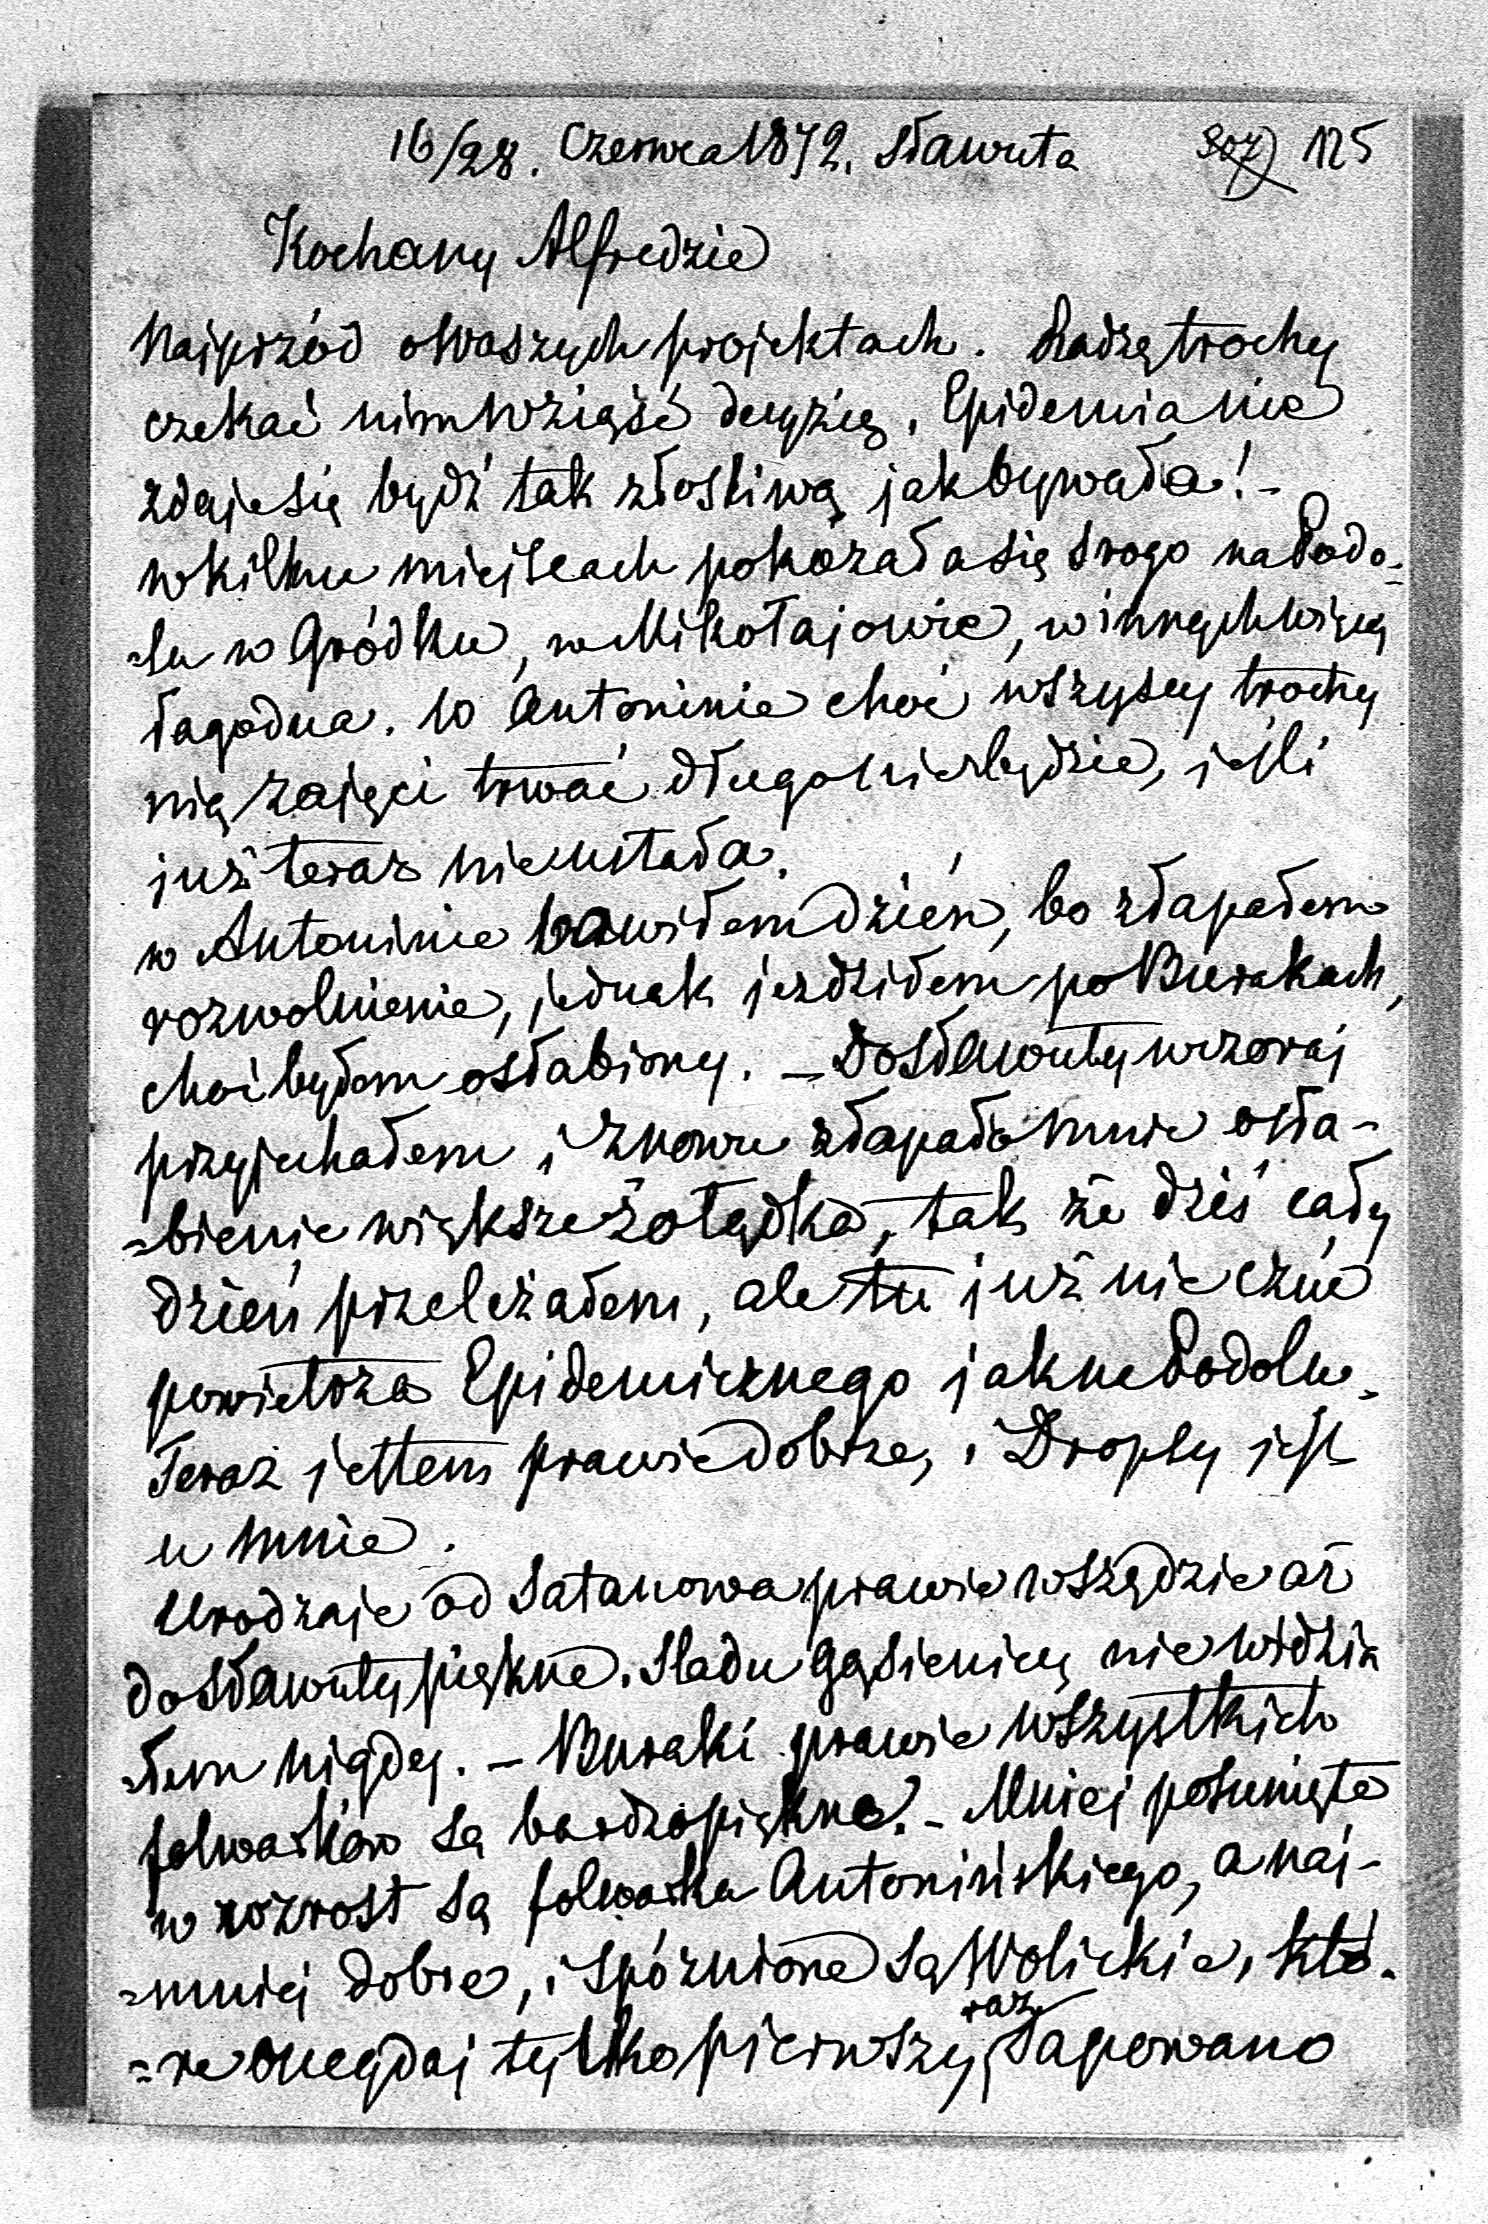 16/28. Czerwca 1872. Sławuta 307) 125
Kochany Alfredzie
Najprzód o Waszych projektach. Radzę trochy
czekać nim wziąść decyzię. Epidemia nie
zdaje się bydź tak złosliwą jak bywała! -
w kilku miejscach pokazała się srogo na Podo-
-lu w Gródku, w Mikołajowie, w innych więcy
łagodna. w Antoninie choć wszyscy trochy
nią zajęci trwać długo nie będzie, jesli
już teraz nie ustała.
w Antoninie bawiłem dzień, bo złapałem
rozwolnienie, jednak jezdziłem po Burakach,
choć byłem osłabiony. - Do Sławuty wczoraj
przyjechałem i znowu złapało mnie osła-
-bienie większe żołądka, tak że dziś cały
dzień przeleżałem, ale tu już nie czuć
powietrza Epidemicznego jak na Podolu.
Teraz jestem prawie dobrze, i Dropsy jest
u mnie.
Urodzaje od Satanowa prawie wszędzie aż
do Sławuty piękne. Sladu gąsienicy nie widzia
-łem nigdy. - Buraki prawie wszystkich
folwarków są bardzo piękne. - Mniej posunięte
w rozrost są folwarka Antonińskiego, a naj-
-mniej dobre, i spóznione są Wolickie, któ-
-re onegdaj tylko pierwszy raz sapowano